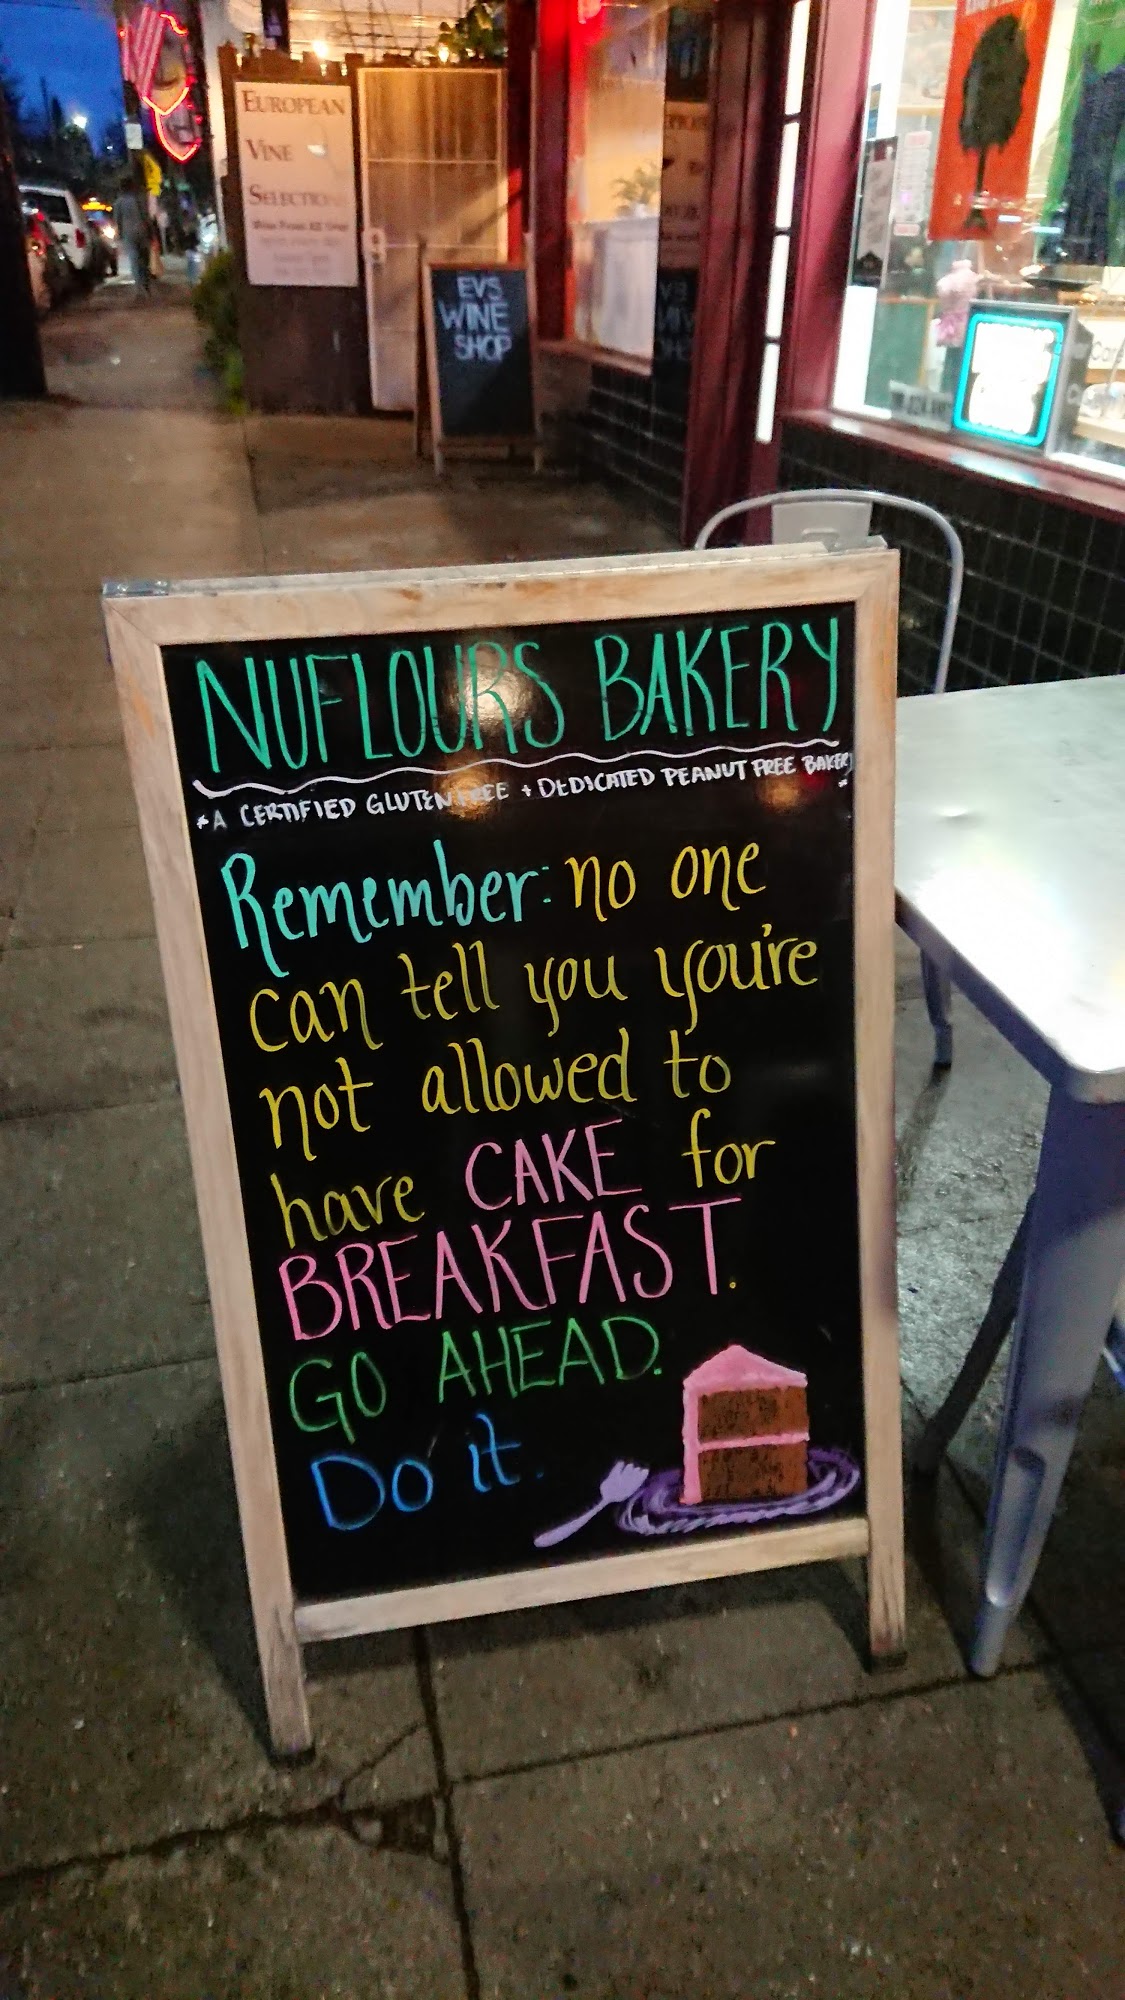 EUROPEAN
VINE
SELECTIONS
EVS
WINE
SHOP
NUFLOURS BAKERY
*A CERTIFIED GLUTEN FREE + DEDICATED PEANUT FREE BAKERY*
Remember: no one
can tell you you're
not allowed to
have CAKE for
BREAKFAST.
GO AHEAD.
Do it.